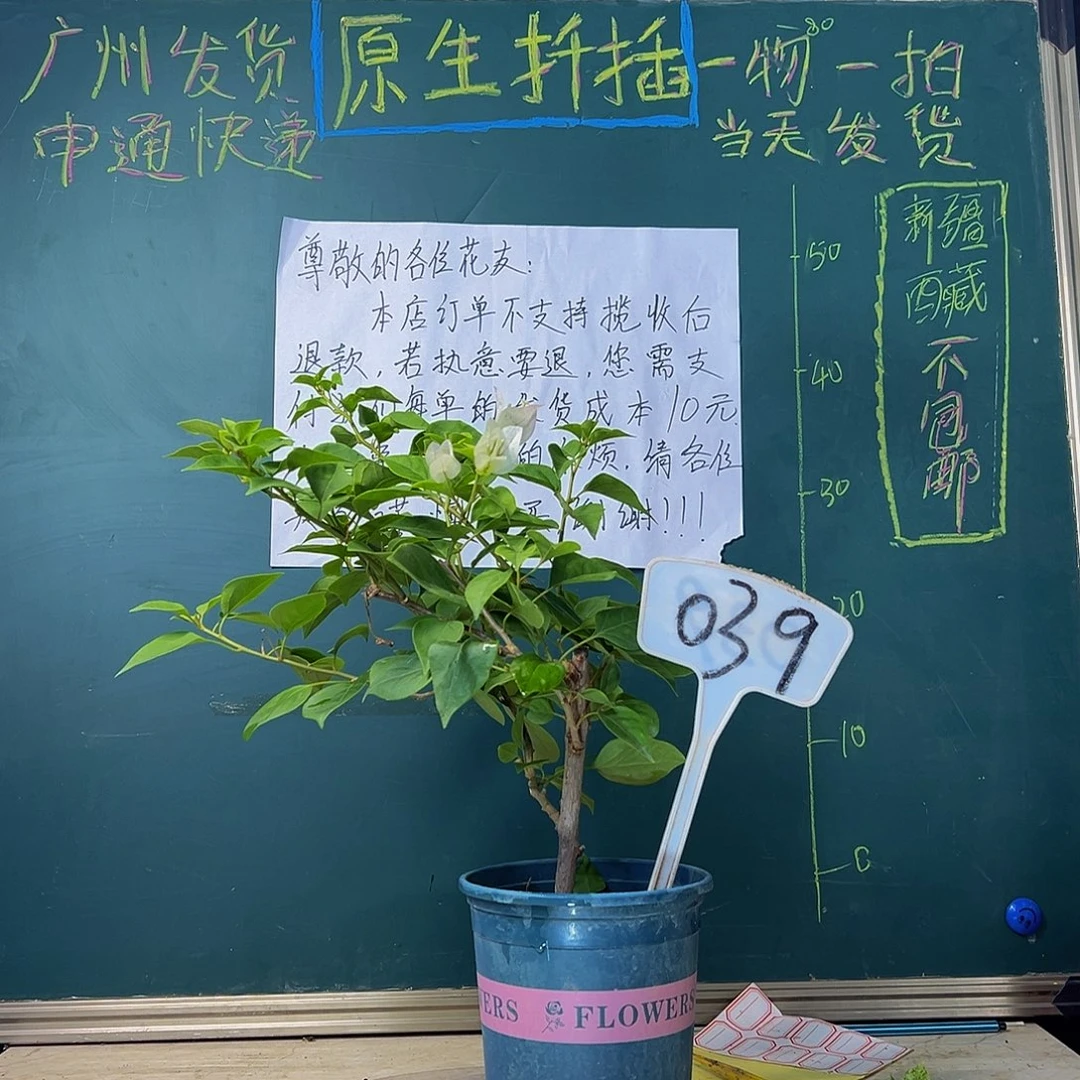 广州发货
申通快递
原生扦插
一物一拍
当天发货
新疆
西藏
不同邮
50
40
30
20
10
0
尊敬的各位花友:
本店订单不支持揽收后
退款,若执意要退,您需支
付 们每单的发货成本10元.
的 烦,请各位
谢!!!
039
ERS FLOWERS